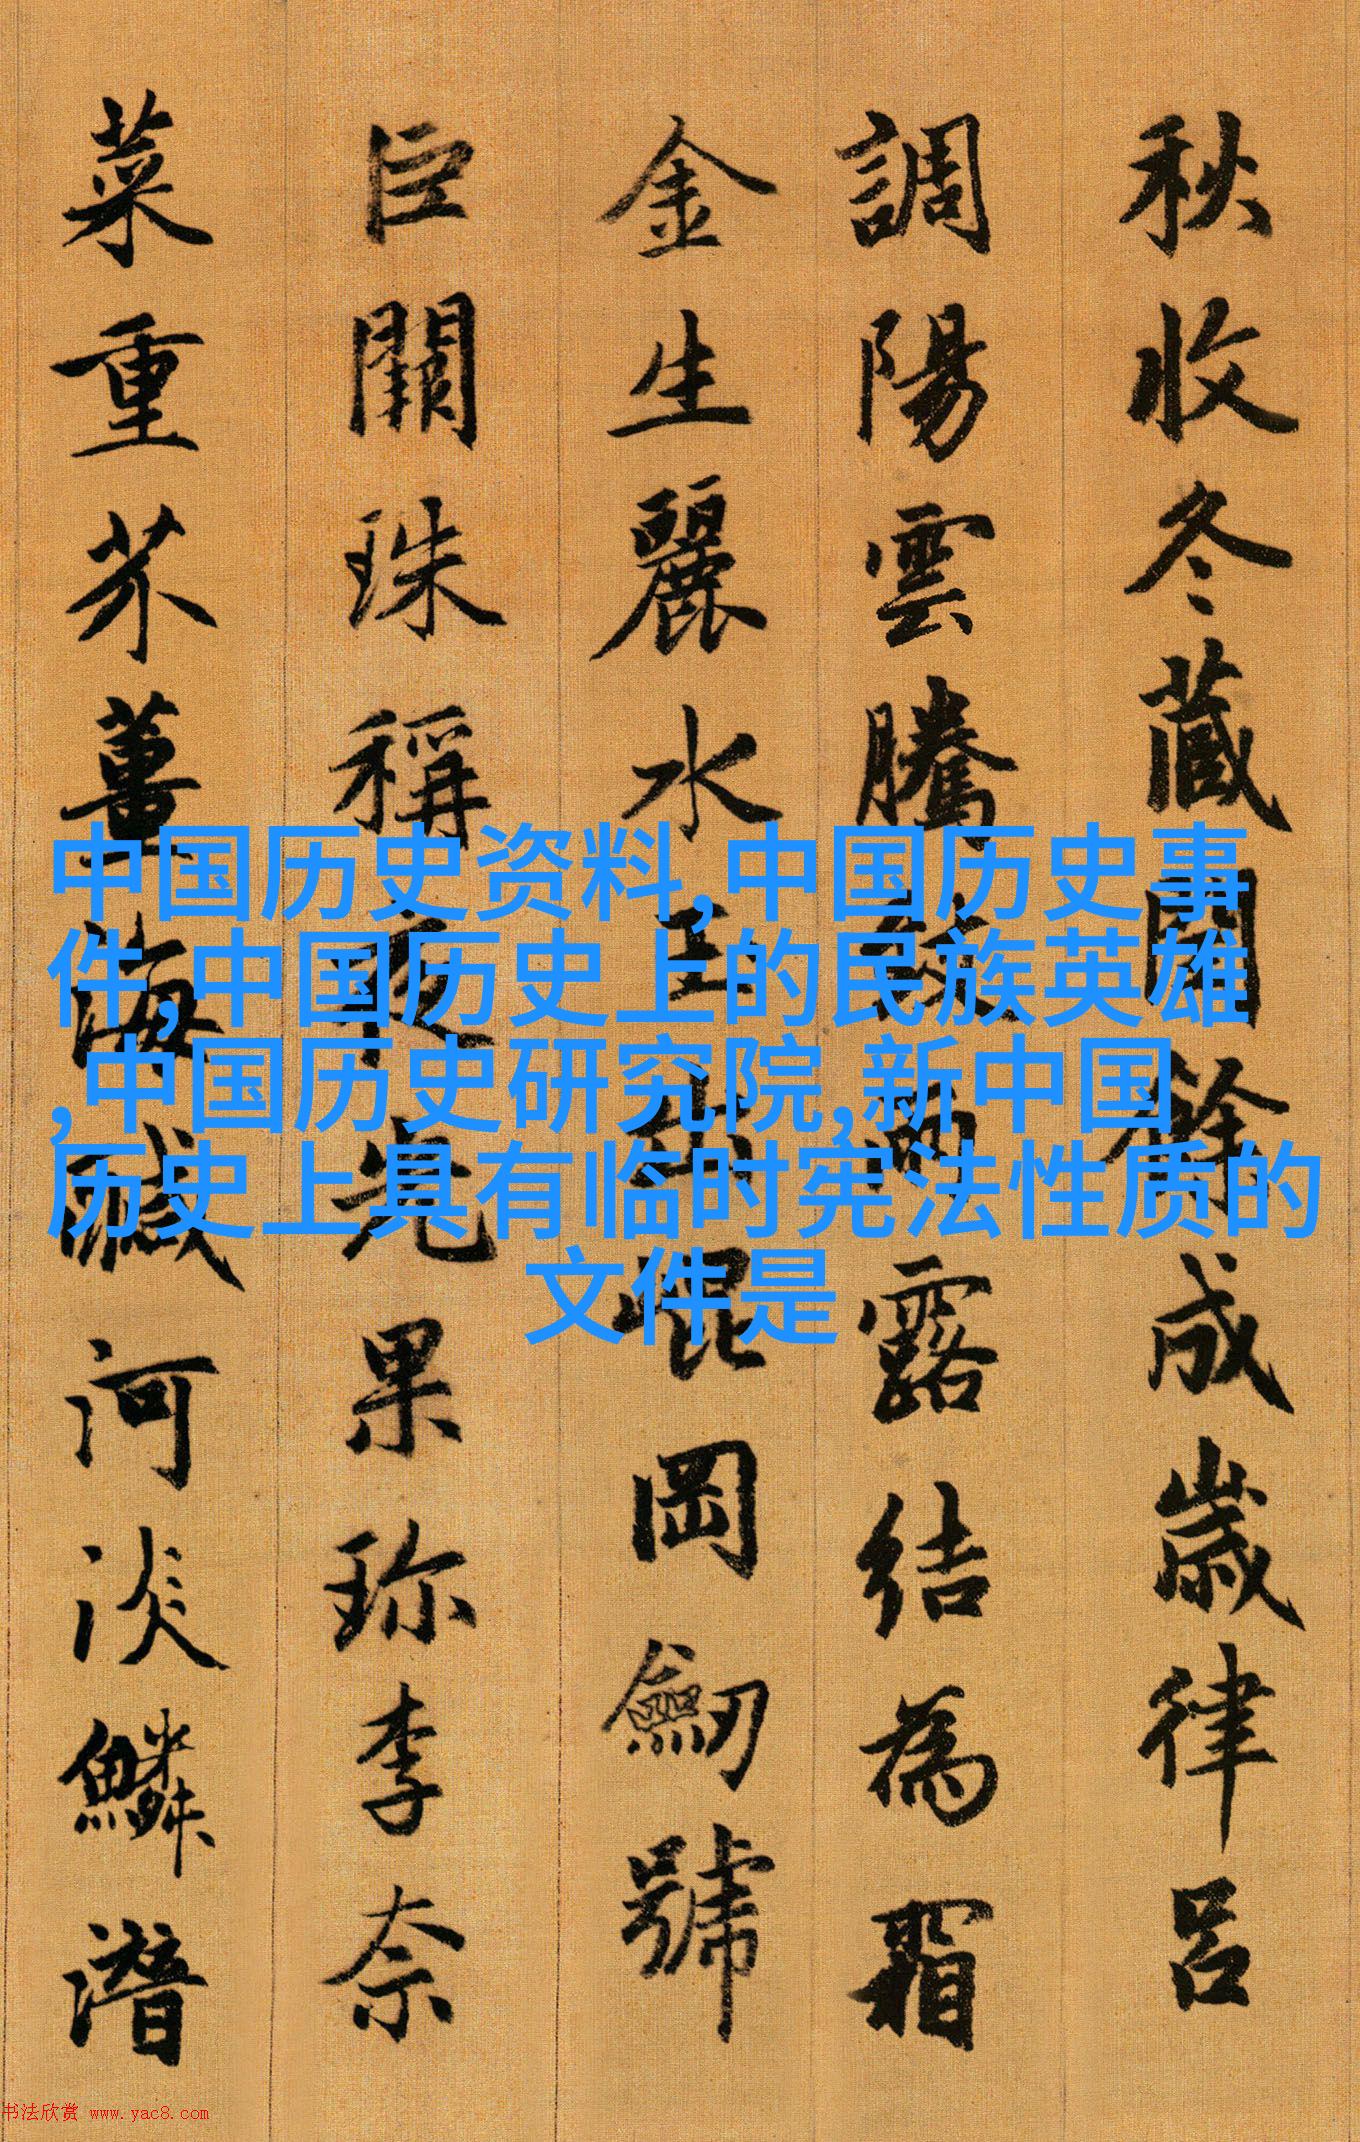 秋收冬藏閏餘成歲律呂
調陽雲騰致雨露結為霜
金生麗水玉出崐岡劒號
巨闕珠稱夜光果珎李柰
菜重芥薑海醎河淡鱗潛
中国历史资料,中国历史事
件,中国历史上的民族英雄
,中国历史研究院,新中国
历史上具有临时宪法性质的
文件是
书法欣赏 www.yac8.com